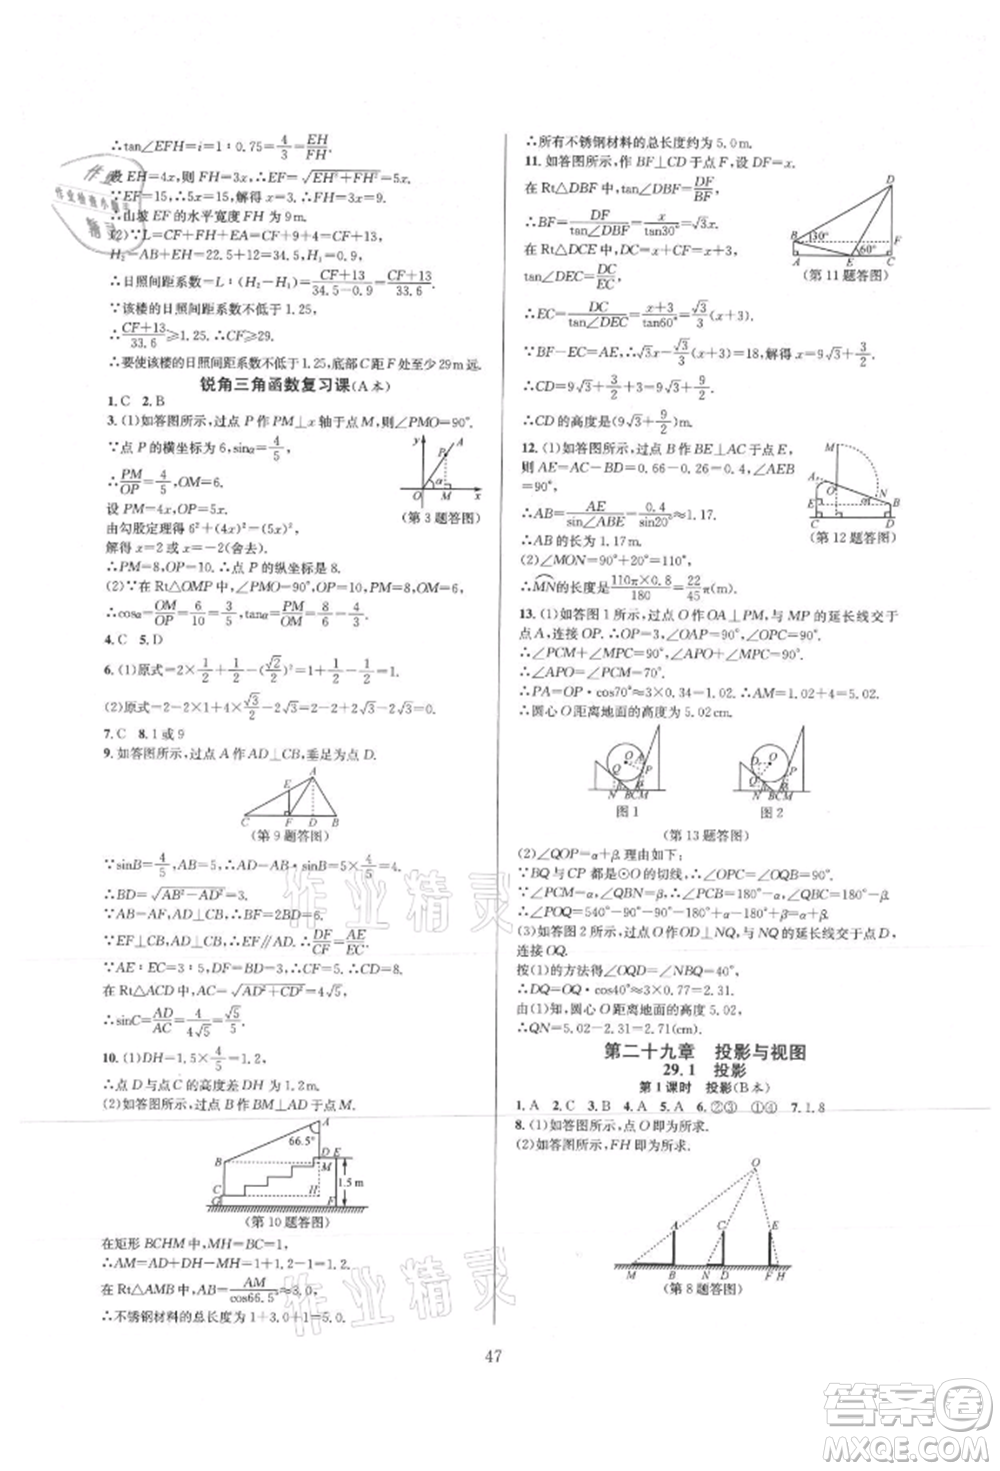 ∴tan∠EFH=i=1∶0.75=4/3=EH/FH.
设 EH=4x,则 FH=3x,∴EF=√(EH²+FH²)=5x.
∵EF=15,∴5x=15,x=3,∴FH=3x=9.
∴山坡 EF 的水平宽度 FH 为 9 m.
(2)∵L=CF+FH+EA=CF+9+4=CF+13,
H₂=AB+EH=22.5+12=34.5,H₁=0.9,
∴日照间距系数=L∶(H₂-H₁)=(CF+13)/(34.5-0.9)=(CF+13)/33.6.
∵该楼的日照间距系数不低于 1.25,
∴(CF+13)/33.6≥1.25.∴CF≥29.
∴要使该楼的日照间距系数不低于 1.25,底部 C 距 F 处至少 29 m 远.
锐角三角函数复习课(A本)
1.C 2.B
3.(1)如答图所示,过点 P 作 PM⊥x 轴于点 M,则∠PMO=90°.
∵点 P 的横坐标为 6,sinα=4/5,
∴PM/OP=4/5,OM=6.
设 PM=4x,OP=5x.
由勾股定理得 6²+(4x)²=(5x)²,
解得 x=2 或 x=-2(舍去).
(第 3 题答图)
∴PM=8,OP=10.∴点 P 的纵坐标为 8.
(2)∵在 Rt△OMP 中,∠PMO=90°,OM=6,PM=8,OP=10,
∴cosα=OM/OP=6/10=3/5,tanα=PM/OM=8/6=4/3.
4.C 5.D
6.(1)原式=2×1/2+1/2-(√2/2)²=1+1/2-1/2=1.
(2)原式=2-2×1+4×√3/2-2√3=2-2+2√3-2√3=0.
7.C 8.1 或 9
9.如答图所示,过点 A 作 AD⊥CB,垂足为点 D.
(第 9 题答图)
∵sinB=4/5,AB=5,∴AD=AB·sinB=5×4/5=4.
∴BD=√(AB²-AD²)=√(5²-4²)=3.
∵AB=AF,AD⊥CB,∴BD=DF=3.
∵EF⊥CB,AD⊥CB,∴EF∥AD.∴DF/CF=AE/EC.
∵AE∶EC=3∶5,DF=3,∴CF=5.∴CD=8.
在 Rt△ACD 中,AC=√(AD²+CD²)=4√5,
∴sinC=AD/AC=4/(4√5)=√5/5.
10.(1)DH=1.5×4/5=1.2,
∴点 D 与点 C 的高度差 DH 为 1.2 m.
(2)如答图所示,过点 B 作 BM⊥AH 于点 M.
(第 10 题答图)
在矩形 BCHM 中,MH=BC=1,
∴AM=AD+DH-MH=1+1.2-1=1.2.
在 Rt△AMB 中,AB=AM/cos66.5°≈3.0,
∴不锈钢材料的总长度为 1+3.0+1=5.0.
∴所有不锈钢材料的总长度约为 5.0 m.
11.如答图所示,作 BF⊥CD 于点 F,设 DF=x.
在 Rt△DBF 中,tan∠DBF=DF/BF,
∴BF=DF/tan∠DBF=x/tan30°=√3x.
在 Rt△DCE 中,DC=x+CF=3+x,
tan∠DEC=DC/EC,
(第 11 题答图)
∴EC=DC/tan∠DEC=(x+3)/tan60°=√3/3(x+3).
∵BF-EC=AE,∴√3x-√3/3(x+3)=18.解得 x=9√3+3/2.
∴CD=9√3+3/2+3=9√3+9/2.
∴CD 的高度是(9√3+9/2)m.
12.(1)如答图所示,过点 B 作 BE⊥AC 于点 E,
则 AE=AC-BD=0.66-0.26=0.4,∠AEB
=90°,
∴AB=AE/sin∠ABE=0.4/sin20°≈1.17.
∴AB 的长为 1.17 m.
(第 12 题答图)
(2)∠MON=90°+20°=110°,
∴MN的长度是(110π×0.8)/180=22/45π(m).
13.(1)如答图 1 所示,过点 O 作 OA⊥PM,与 MP 的延长线交于
点 A,连接 OP.∴OP=3,∠OPC=90°.
∴∠PCM+∠CPM=90°,∠APO+∠CPM=90°.
∴∠APO=∠PCM=70°.
∴PA=OP·cos70°≈3×0.34=1.02.∴AM=1.02+4=5.02.
∴圆心 O 距离地面的高度为 5.02 cm.
图 1
图 2
(第 13 题答图)
(2)∠QOP=α+β.理由如下:
∵BQ 与 CP 都是⊙O 的切线,∴∠OPC=∠OQB=90°.
∵∠PCM=α,∠QBN=β,∴∠PCB=180°-α,∠QBC=180°-β.
∴∠POQ=540°-90°-90°-(180°-α)-(180°-β)=α+β.
(3)如答图 2 所示,过点 O 作 OD⊥NQ,与 NQ 的延长线交于点 D,
连接 OQ.
按(1)的方法得∠OQD=∠NBQ=50°.
∴DQ=OQ×cos50°≈3×0.64=2.31.
由(1)知,圆心 O 距离地面的高度为 5.02,
∴QN=5.02-2.31=2.71(cm).
第二十九章 投影与视图
29.1 投影
第 1 课时 投影(B本)
1.A 2.C 3.B 4.A 5.A 6.②③ ①④ 7.1.8
8.(1)如答图所示,点 O 即为所求.
(2)如答图所示,FH 即为所求.
(第 8 题答图)
47
作业精灵
答案圈
MXQE.COM